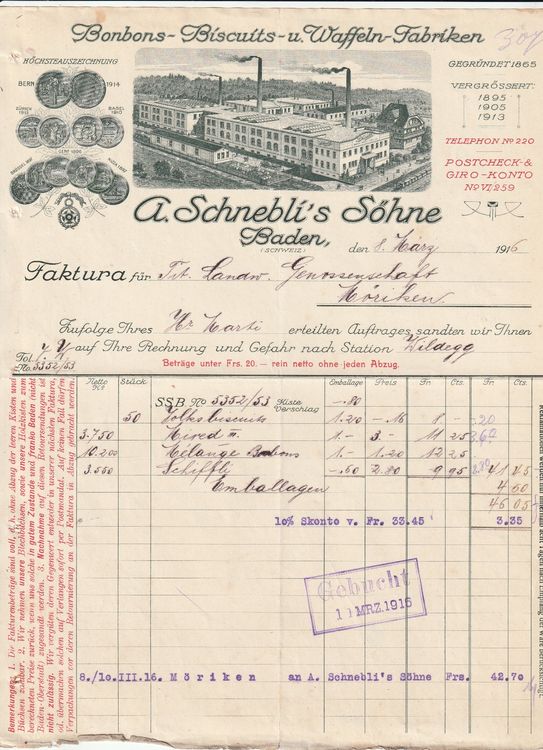 Bonbons-Biscuits-u. Waffeln-Fabriken
307
HÖCHSTE AUSZEICHNUNG
BERN 1914
ZÜRICH 1912
BASEL 1910
GENF 1896
GEGRÜNDET 1865
VERGRÖSSERT:
1895
1905
1913
TELEPHON No 220
POSTCHECK-&
GIRO-KONTO
No VI/259
A. Schnebli's Söhne
Baden,
(SCHWEIZ)
den 8. März 1916
Faktura für Tit. Landw. Genossenschaft
Möriken
Zufolge Ihres Hr Marti erteilten Auftrages, sandten wir Ihnen
auf Ihre Rechnung und Gefahr nach Station Wildegg
Fol.
No 5352/53
Beträge unter Frs. 20.- rein netto ohne jeden Abzug.
Netto Stück Emballage Preis Fr. Cts. Fr. Cts.
SSB. No 5352/53 Kiste Verschlag -.80
50 Volksbiscuits 1.20 -.16 8
3.750 Mixed III 1.- 3.- 11 25
10.200 Mélange Bonbons 1.- 1.20 12 25
3.550 Schiffli -.60 2.80 9 95 41 45
Emballagen 4 60
46 05
10% Skonto v. Fr. 33.45 3.35
Gebucht
11 MRZ. 1916
8./10.III.16 Möriken an A. Schnebli's Söhne Frs. 42.70
Bemerkungen: 1. Die Fakturenbeträge sind voll, d. h. ohne Abzug der leeren Kisten und
Büchsen zahlbar. 2. Wir nehmen unsere Blechbüchsen, sowie unsere Holzkisten zum
berechneten Preise zurück, wenn uns solche in gutem Zustande und franko Baden (nicht
Baden-Oberstadt) zugesandt werden. 3. Nachnahme auf diesen Retoursendungen ist
nicht zulässig. Wir vergüten deren Gegenwert entweder in unserer nächsten Faktura,
od. übermachen solchen auf Verlangen sofort per Postmandat. Auf keinen Fall dürfen
Verpackungen vor deren Retournierung an der Faktura in Abzug gebracht werden.